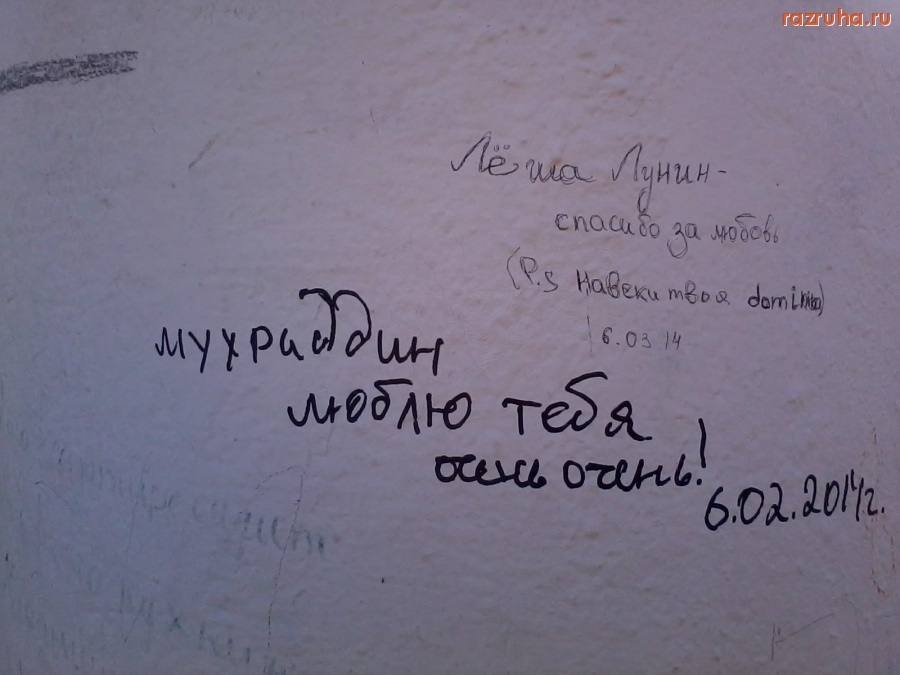 razruha.ru
Лёша Лунин-
спасибо за любовь
(P.s Навеки твоя
6.03 14
мухриддин
люблю тебя
очень очень!
6.02.2014г.